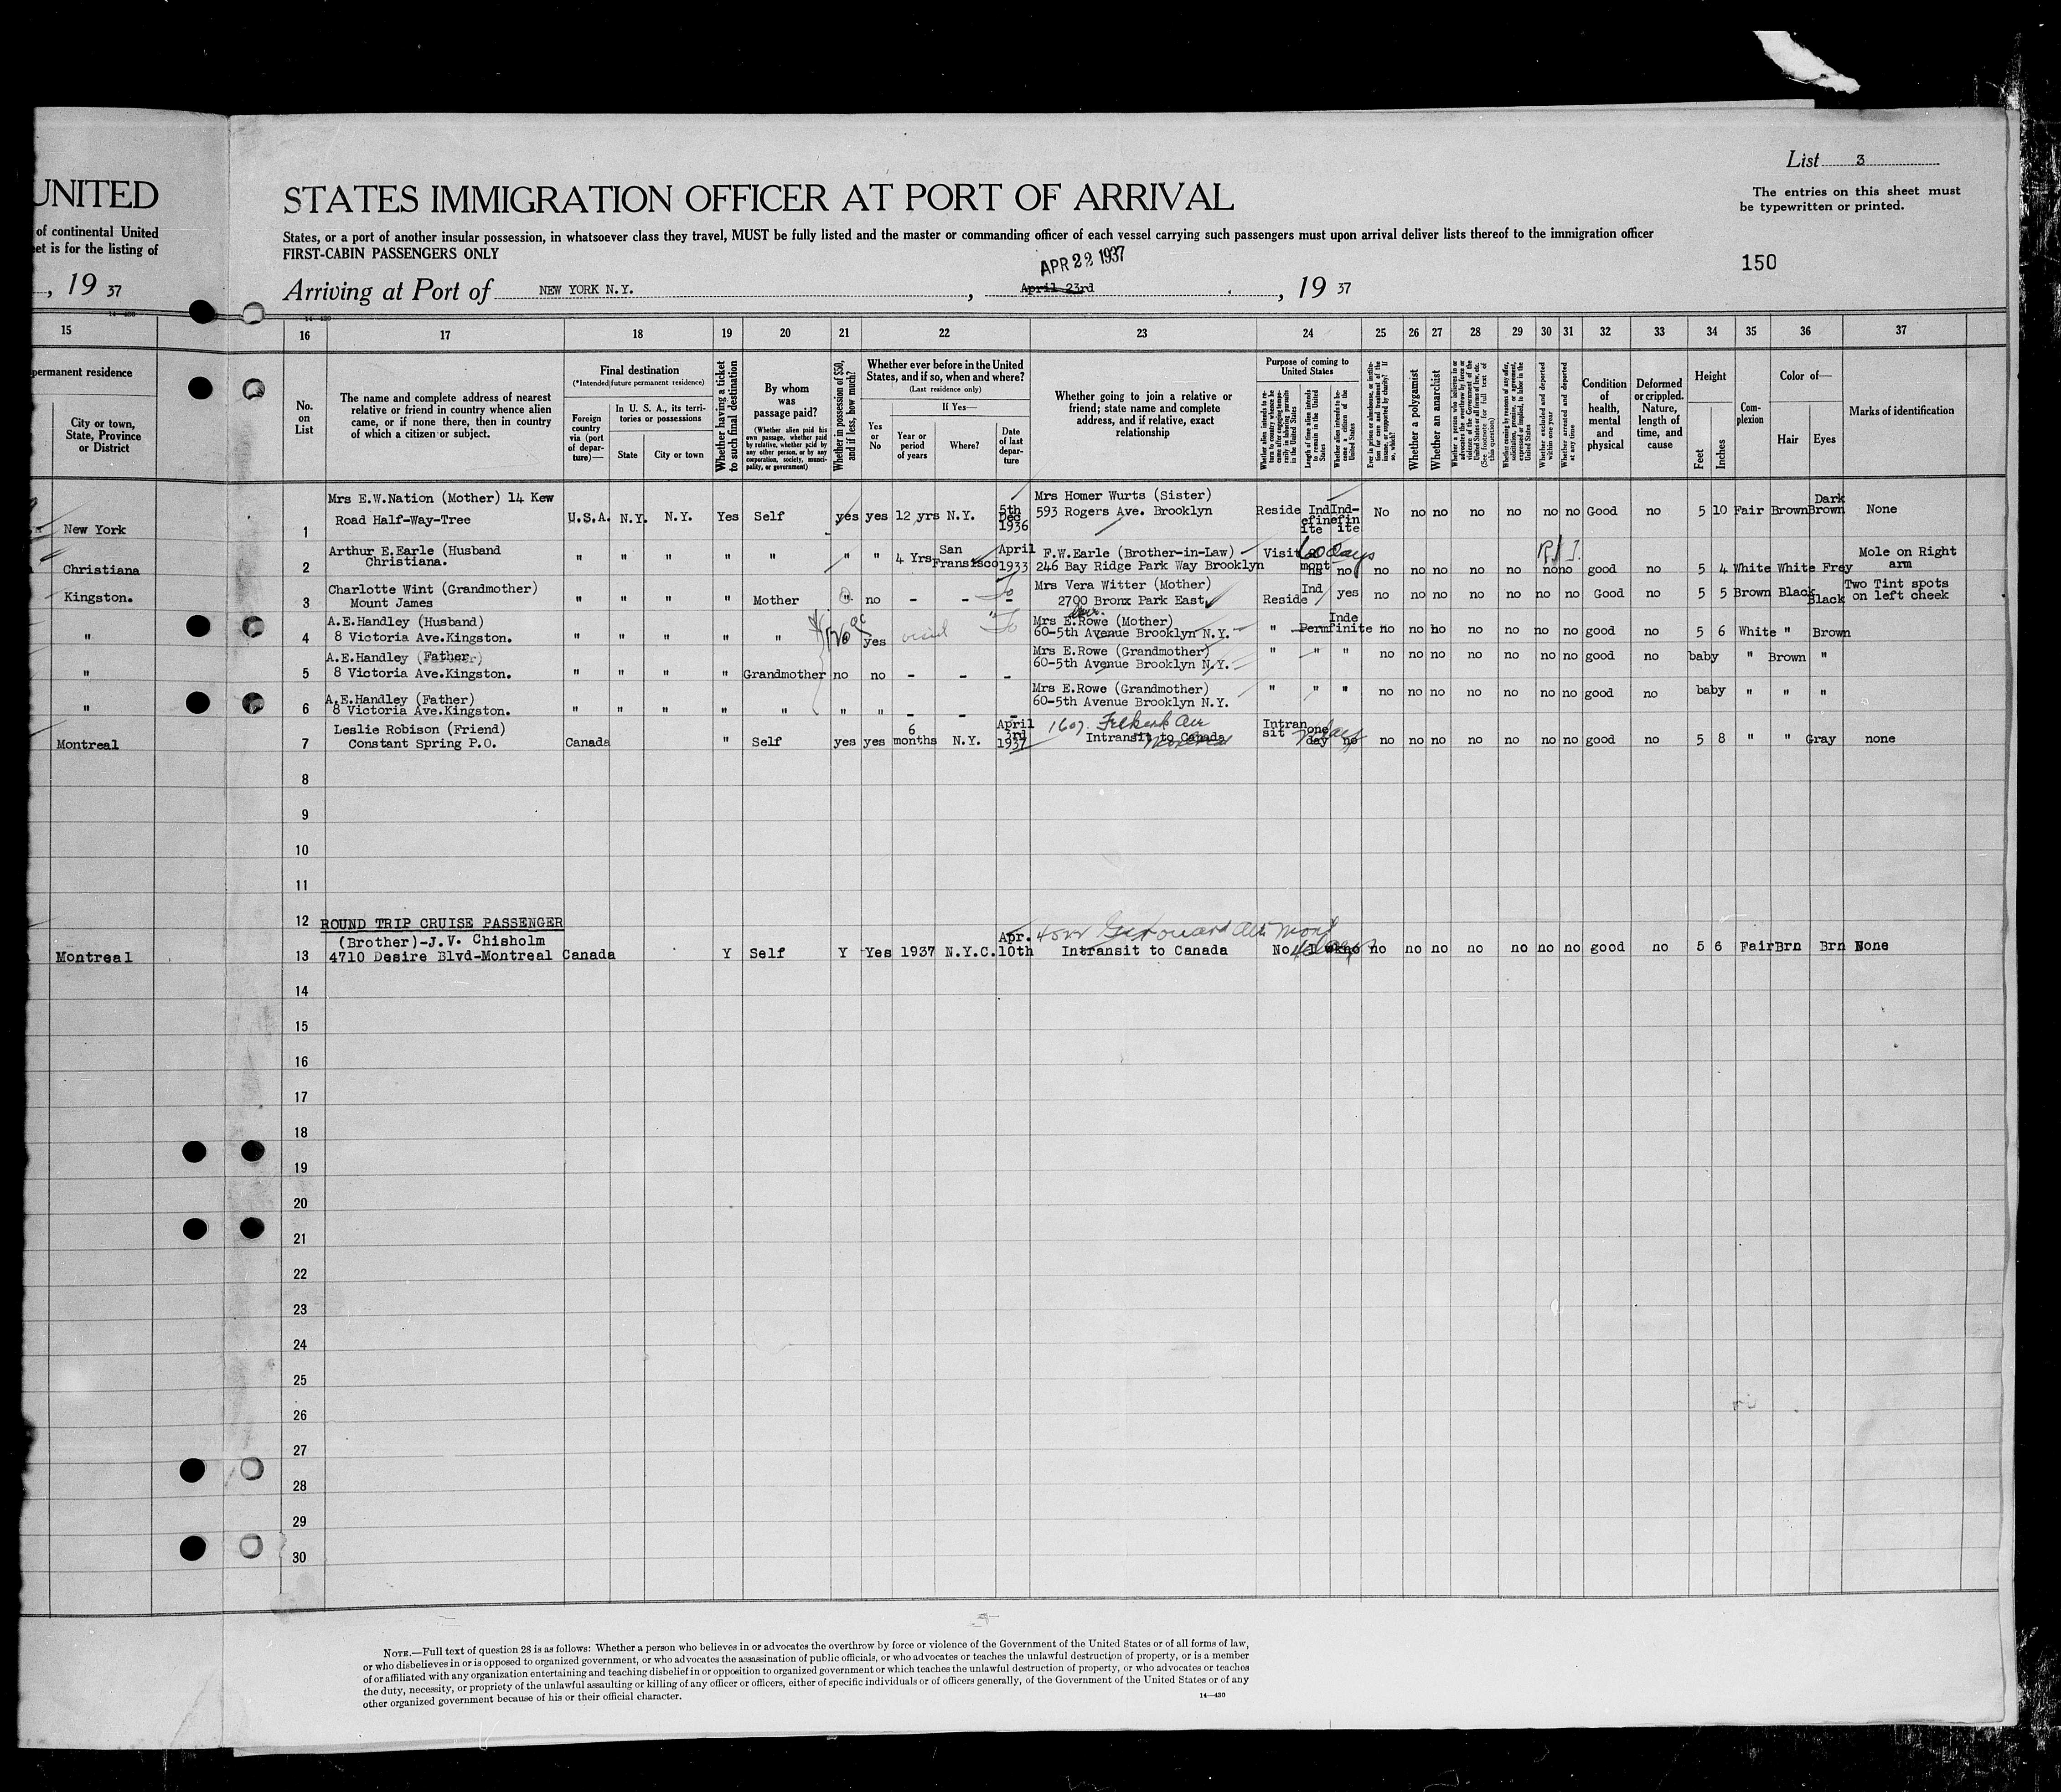 List 3
UNITED
STATES IMMIGRATION OFFICER AT PORT OF ARRIVAL
The entries on this sheet must
be typewritten or printed.
of continental United
et is for the listing of
States, or a port of another insular possession, in whatsoever class they travel, MUST be fully listed and the master or commanding officer of each vessel carrying such passengers must upon arrival deliver lists thereof to the immigration officer
FIRST-CABIN PASSENGERS ONLY
APR 22 1937
150
, 19 37
Arriving at Port of NEW YORK N.Y. , April 23rd , 19 37
14—430
15 16 17 18 19 20 21 22 23 24 25 26 27 28 29 30 31 32 33 34 35 36 37
permanent residence
City or town,
State, Province
or District
No.
on
List
The name and complete address of nearest
relative or friend in country whence alien
came, or if none there, then in country
of which a citizen or subject.
Final destination
(*Intended future permanent residence)
Foreign
country
via (port
of depar-
ture)—
In U. S. A., its terri-
tories or possessions
State
City or town
Whether having a ticket
to such final destination
By whom
was
passage paid?
(Whether alien paid his
own passage, whether paid
by relative, whether paid by
any other person, or by any
corporation, society, munici-
pality, or government)
Whether in possession of $50,
and if less, how much?
Whether ever before in the United
States, and if so, when and where?
(Last residence only)
Yes
or
No
If Yes—
Year or
period
of years
Where?
Date
of last
depar-
ture
Whether going to join a relative or
friend; state name and complete
address, and if relative, exact
relationship
Purpose of coming to
United States
Whether alien intends to re-
turn to country whence he
came after engaging tempo-
rarily in laboring pursuits
in the United States
Length of time alien intends
to remain in the United
States
Whether alien intends to be-
come a citizen of the
United States
Ever in prison or almshouse, or institu-
tion for care and treatment of the
insane, or supported by charity? If
so, which?
Whether a polygamist
Whether an anarchist
Whether a person who believes in or
advocates the overthrow by force or
violence of the Government of the
United States or all forms of law, etc.
(See footnote for full text of
this question)
Whether coming by reason of any offer,
solicitation, promise, or agreement,
expressed or implied, to labor in the
United States
Whether excluded and deported
within one year
Whether arrested and deported
at any time
Condition
of
health,
mental
and
physical
Deformed
or crippled.
Nature,
length of
time, and
cause
Height
Feet
Inches
Com-
plexion
Color of—
Hair
Eyes
Marks of identification
New York 1 Mrs E.W.Nation (Mother) 14 Kew
Road Half-Way-Tree U.S.A. N.Y. N.Y. Yes Self yes yes 12 yrs N.Y. 5th Dec 1936 Mrs Homer Wurts (Sister)
593 Rogers Ave. Brooklyn Reside Indefinite Ind-finite No no no no no no no Good no 5 10 Fair Brown Dark Brown None
Christiana 2 Arthur E.Earle (Husband
Christiana. " " " " " " " 4 Yrs San Fransisco April 1933 F.W.Earle (Brother-in-Law)
246 Bay Ridge Park Way Brooklyn Visit 60 days no no no no no no no no good no 5 4 White White Frey Mole on Right
arm
Kingston. 3 Charlotte Wint (Grandmother)
Mount James " " " " Mother " no - - - Mrs Vera Witter (Mother)
2700 Bronx Park East Reside Ind yes no no no no no no no Good no 5 5 Brown Black Black Two Tint spots
on left cheek
" 4 A.E.Handley (Husband)
8 Victoria Ave.Kingston. " " " " " yes visit Mrs E.Rowe (Mother)
60-5th Avenue Brooklyn N.Y. " Perm Indefinite no no no no no no no good no 5 6 White " Brown
" 5 A.E.Handley (Father)
8 Victoria Ave.Kingston. " " " " Grandmother no no - - - Mrs E.Rowe (Grandmother)
60-5th Avenue Brooklyn N.Y. " " " no no no no no no no good no baby " Brown "
" 6 A.E.Handley (Father)
8 Victoria Ave.Kingston. " " " " " " " - - - Mrs E.Rowe (Grandmother)
60-5th Avenue Brooklyn N.Y. " " " no no no no no no no good no baby " " "
Montreal 7 Leslie Robison (Friend)
Constant Spring P.O. Canada " Self yes yes 6 months N.Y. April 3rd 1937 Intransit to Canada Intransit one day no no no no no no no no good no 5 8 " " Gray none
8
9
10
11
12 ROUND TRIP CRUISE PASSENGER
Montreal 13 (Brother)-J.V. Chisholm
4710 Desire Blvd-Montreal Canada Y Self Y Yes 1937 N.Y.C. Apr. 10th Intransit to Canada No no no no no no no no no good no 5 6 Fair Brn Brn None
14
15
16
17
18
19
20
21
22
23
24
25
26
27
28
29
30
NOTE.—Full text of question 28 is as follows: Whether a person who believes in or advocates the overthrow by force or violence of the Government of the United States or of all forms of law,
or who disbelieves in or is opposed to organized government, or who advocates the assassination of public officials, or who advocates or teaches the unlawful destruction of property, or is a member
of or affiliated with any organization entertaining and teaching disbelief in or opposition to organized government or which teaches the unlawful destruction of property, or who advocates or teaches
the duty, necessity, or propriety of the unlawful assaulting or killing of any officer or officers, either of specific individuals or of officers generally, of the Government of the United States or of any
other organized government because of his or their official character.
14—430